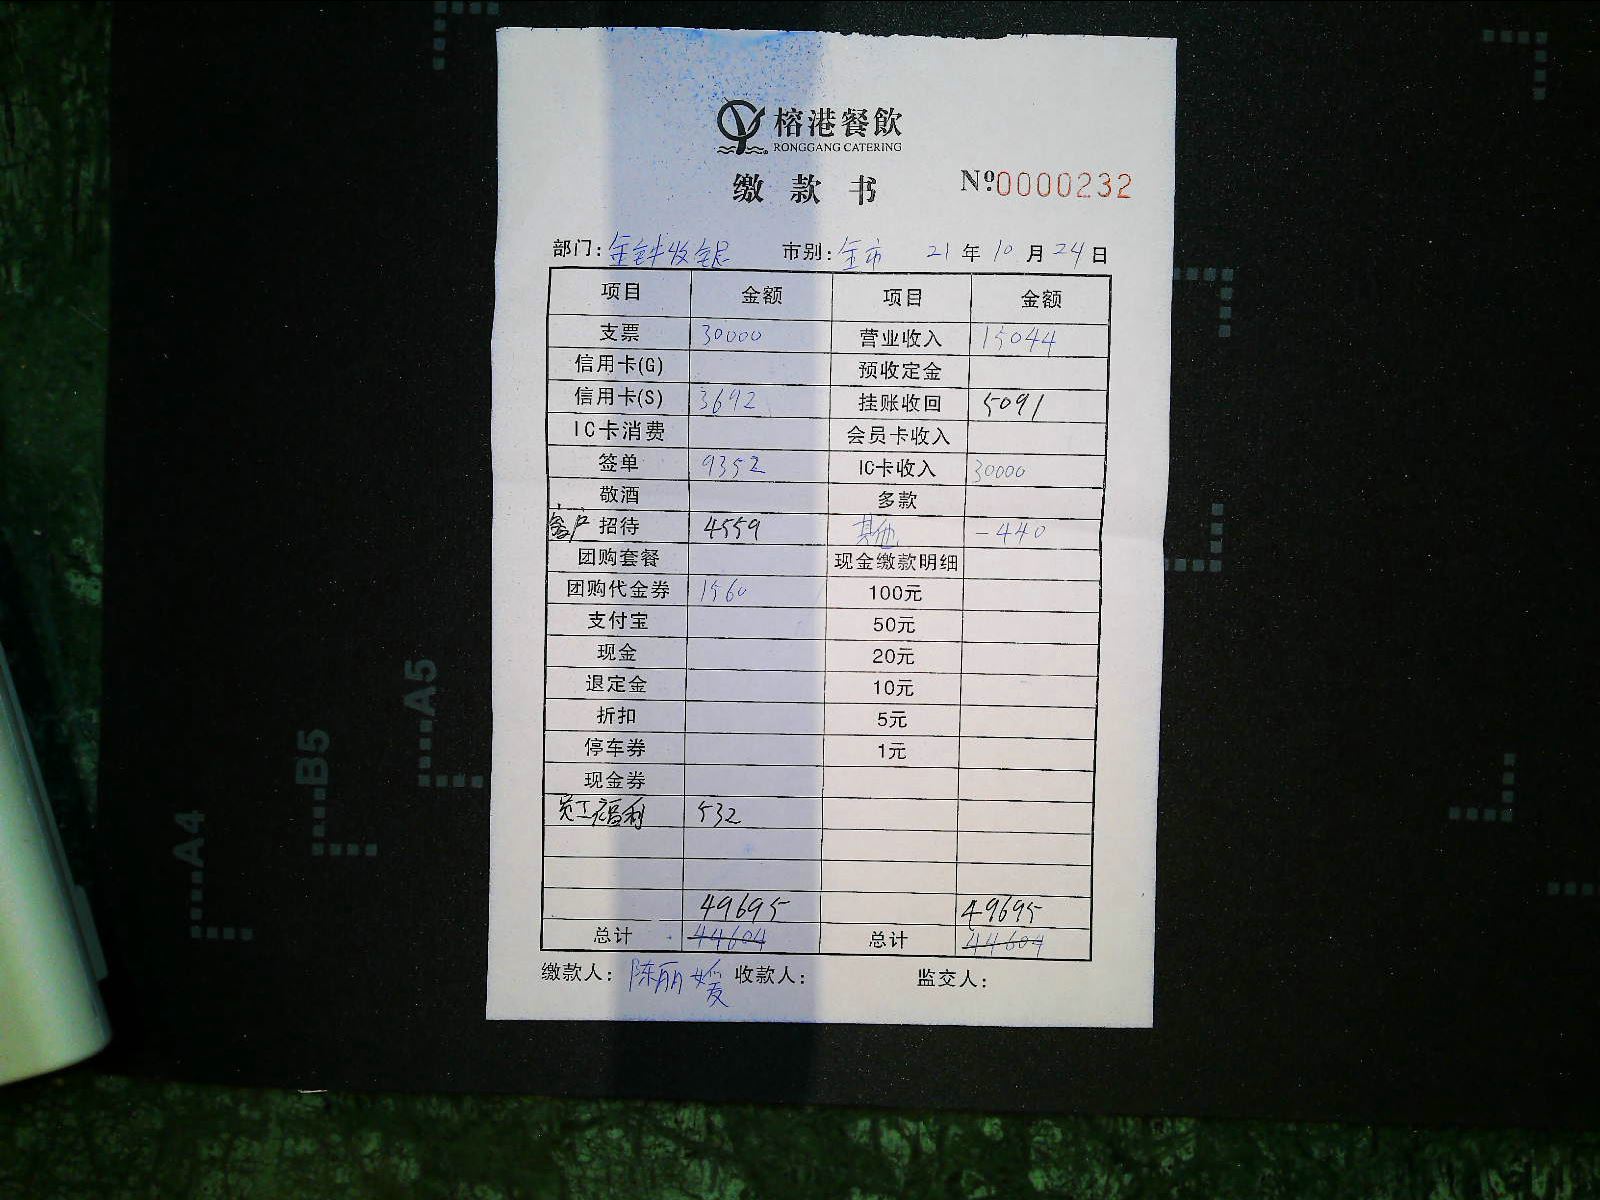 榕港餐飲
RONGGANG CATERING
缴款书 Nº0000232
部门: 金钟收银 市别: 全市 21年10月24日
项目 金额 项目 金额
支票 30000 营业收入 15044
信用卡(G) 预收定金
信用卡(S) 3692 挂账收回 5091
IC卡消费 会员卡收入
签单 9352 IC卡收入 30000
敬酒 多款
客户招待 4559 其他 -440
团购套餐 现金缴款明细
团购代金券 1560 100元
支付宝 50元
现金 20元
退定金 10元
折扣 5元
停车券 1元
现金券
员工福利 532
49695 49695
总计 44604 总计 44604
缴款人: 陈丽媛 收款人: 监交人:
A4
B5
A5